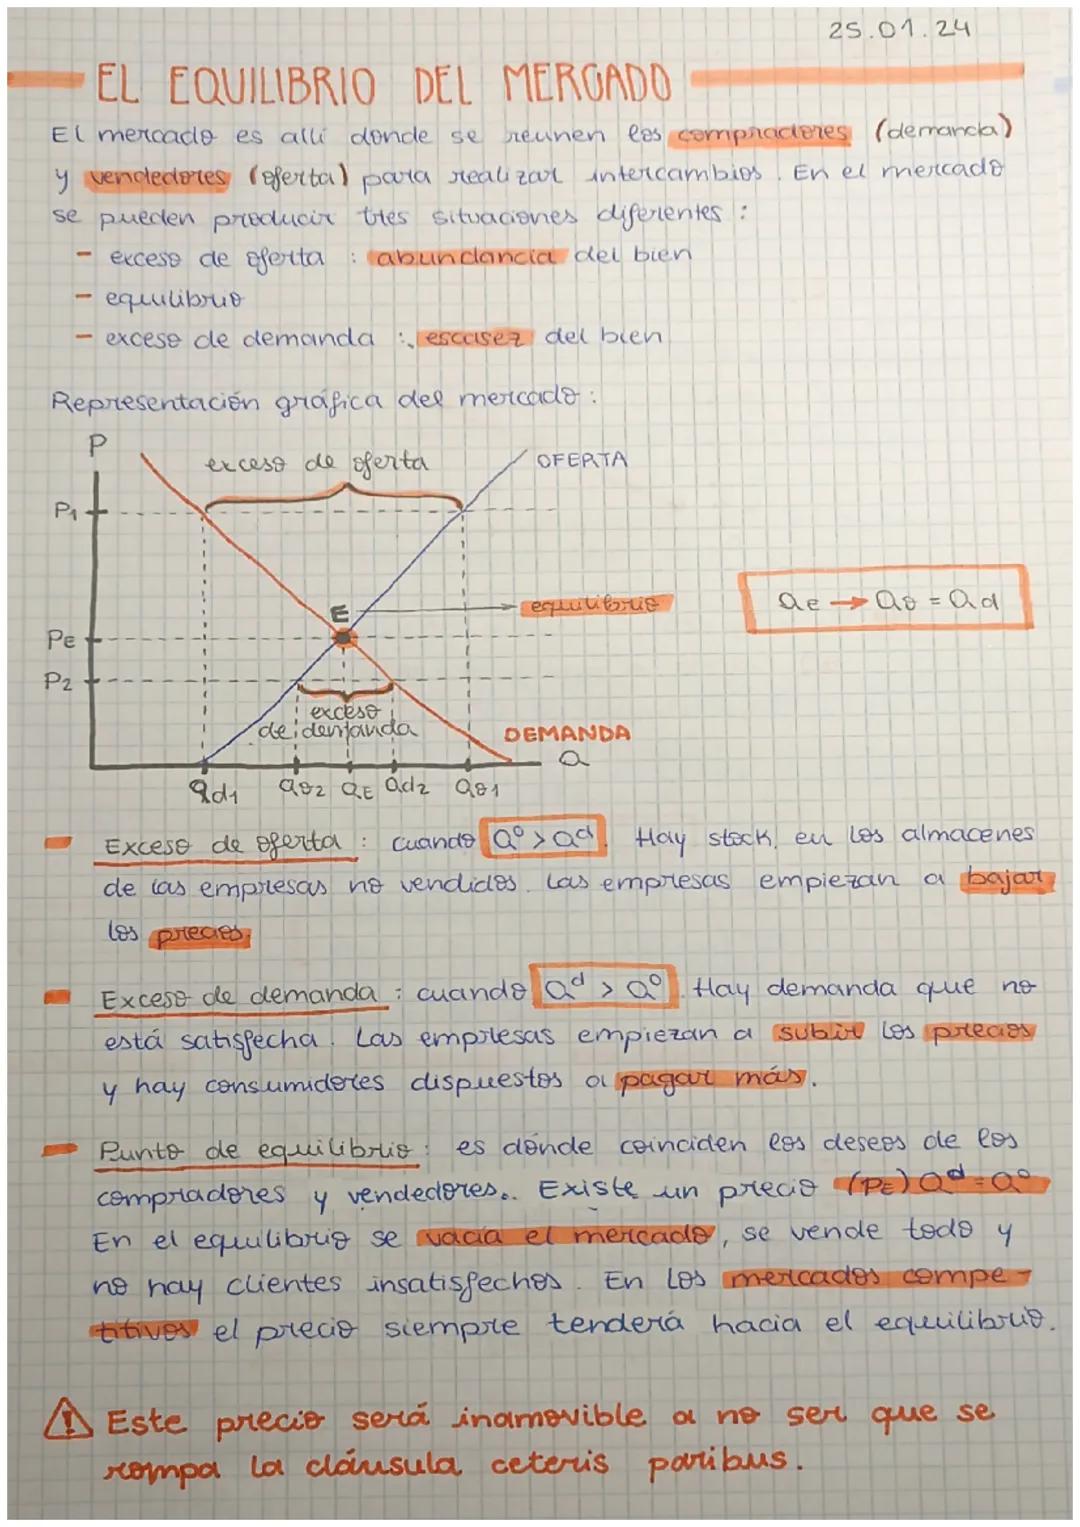 25.01.24
EL EQUILIBRIO DEL MERCADO
El mercado es allí donde se reunen los compradores (demanda)
y vendedores (oferta) para realizar intercambios. En el mercado
se pueden producir tres situaciones diferentes:
- exceso de oferta : abundancia del bien
- equilibrio
- exceso de demanda : escasez del bien
Representación gráfica del mercado:
P
exceso de oferta
OFERTA
P1
E
equilibrio
Qe → Qo = Qd
PE
P2
exceso
de demanda
DEMANDA
Q
Qd1 Qo2 QE Qd2 Qo1
- Exceso de oferta : cuando Qº > Qd. Hay stock en los almacenes
de las empresas no vendidos. Las empresas empiezan a bajar
los precios.
- Exceso de demanda : cuando Qd > Qº. Hay demanda que no
está satisfecha. Las empresas empiezan a subir los precios
y hay consumidores dispuestos a pagar más.
- Punto de equilibrio: es dónde coinciden los deseos de los
compradores y vendedores.. Existe un precio (PE) Qd = Qº
En el equilibrio se vacía el mercado, se vende todo y
no hay clientes insatisfechos. En los mercados compe-
titivos el precio siempre tenderá hacia el equilibrio.
⚠ Este precio será inamovible a no ser que se
rompa la cláusula ceteris paribus.